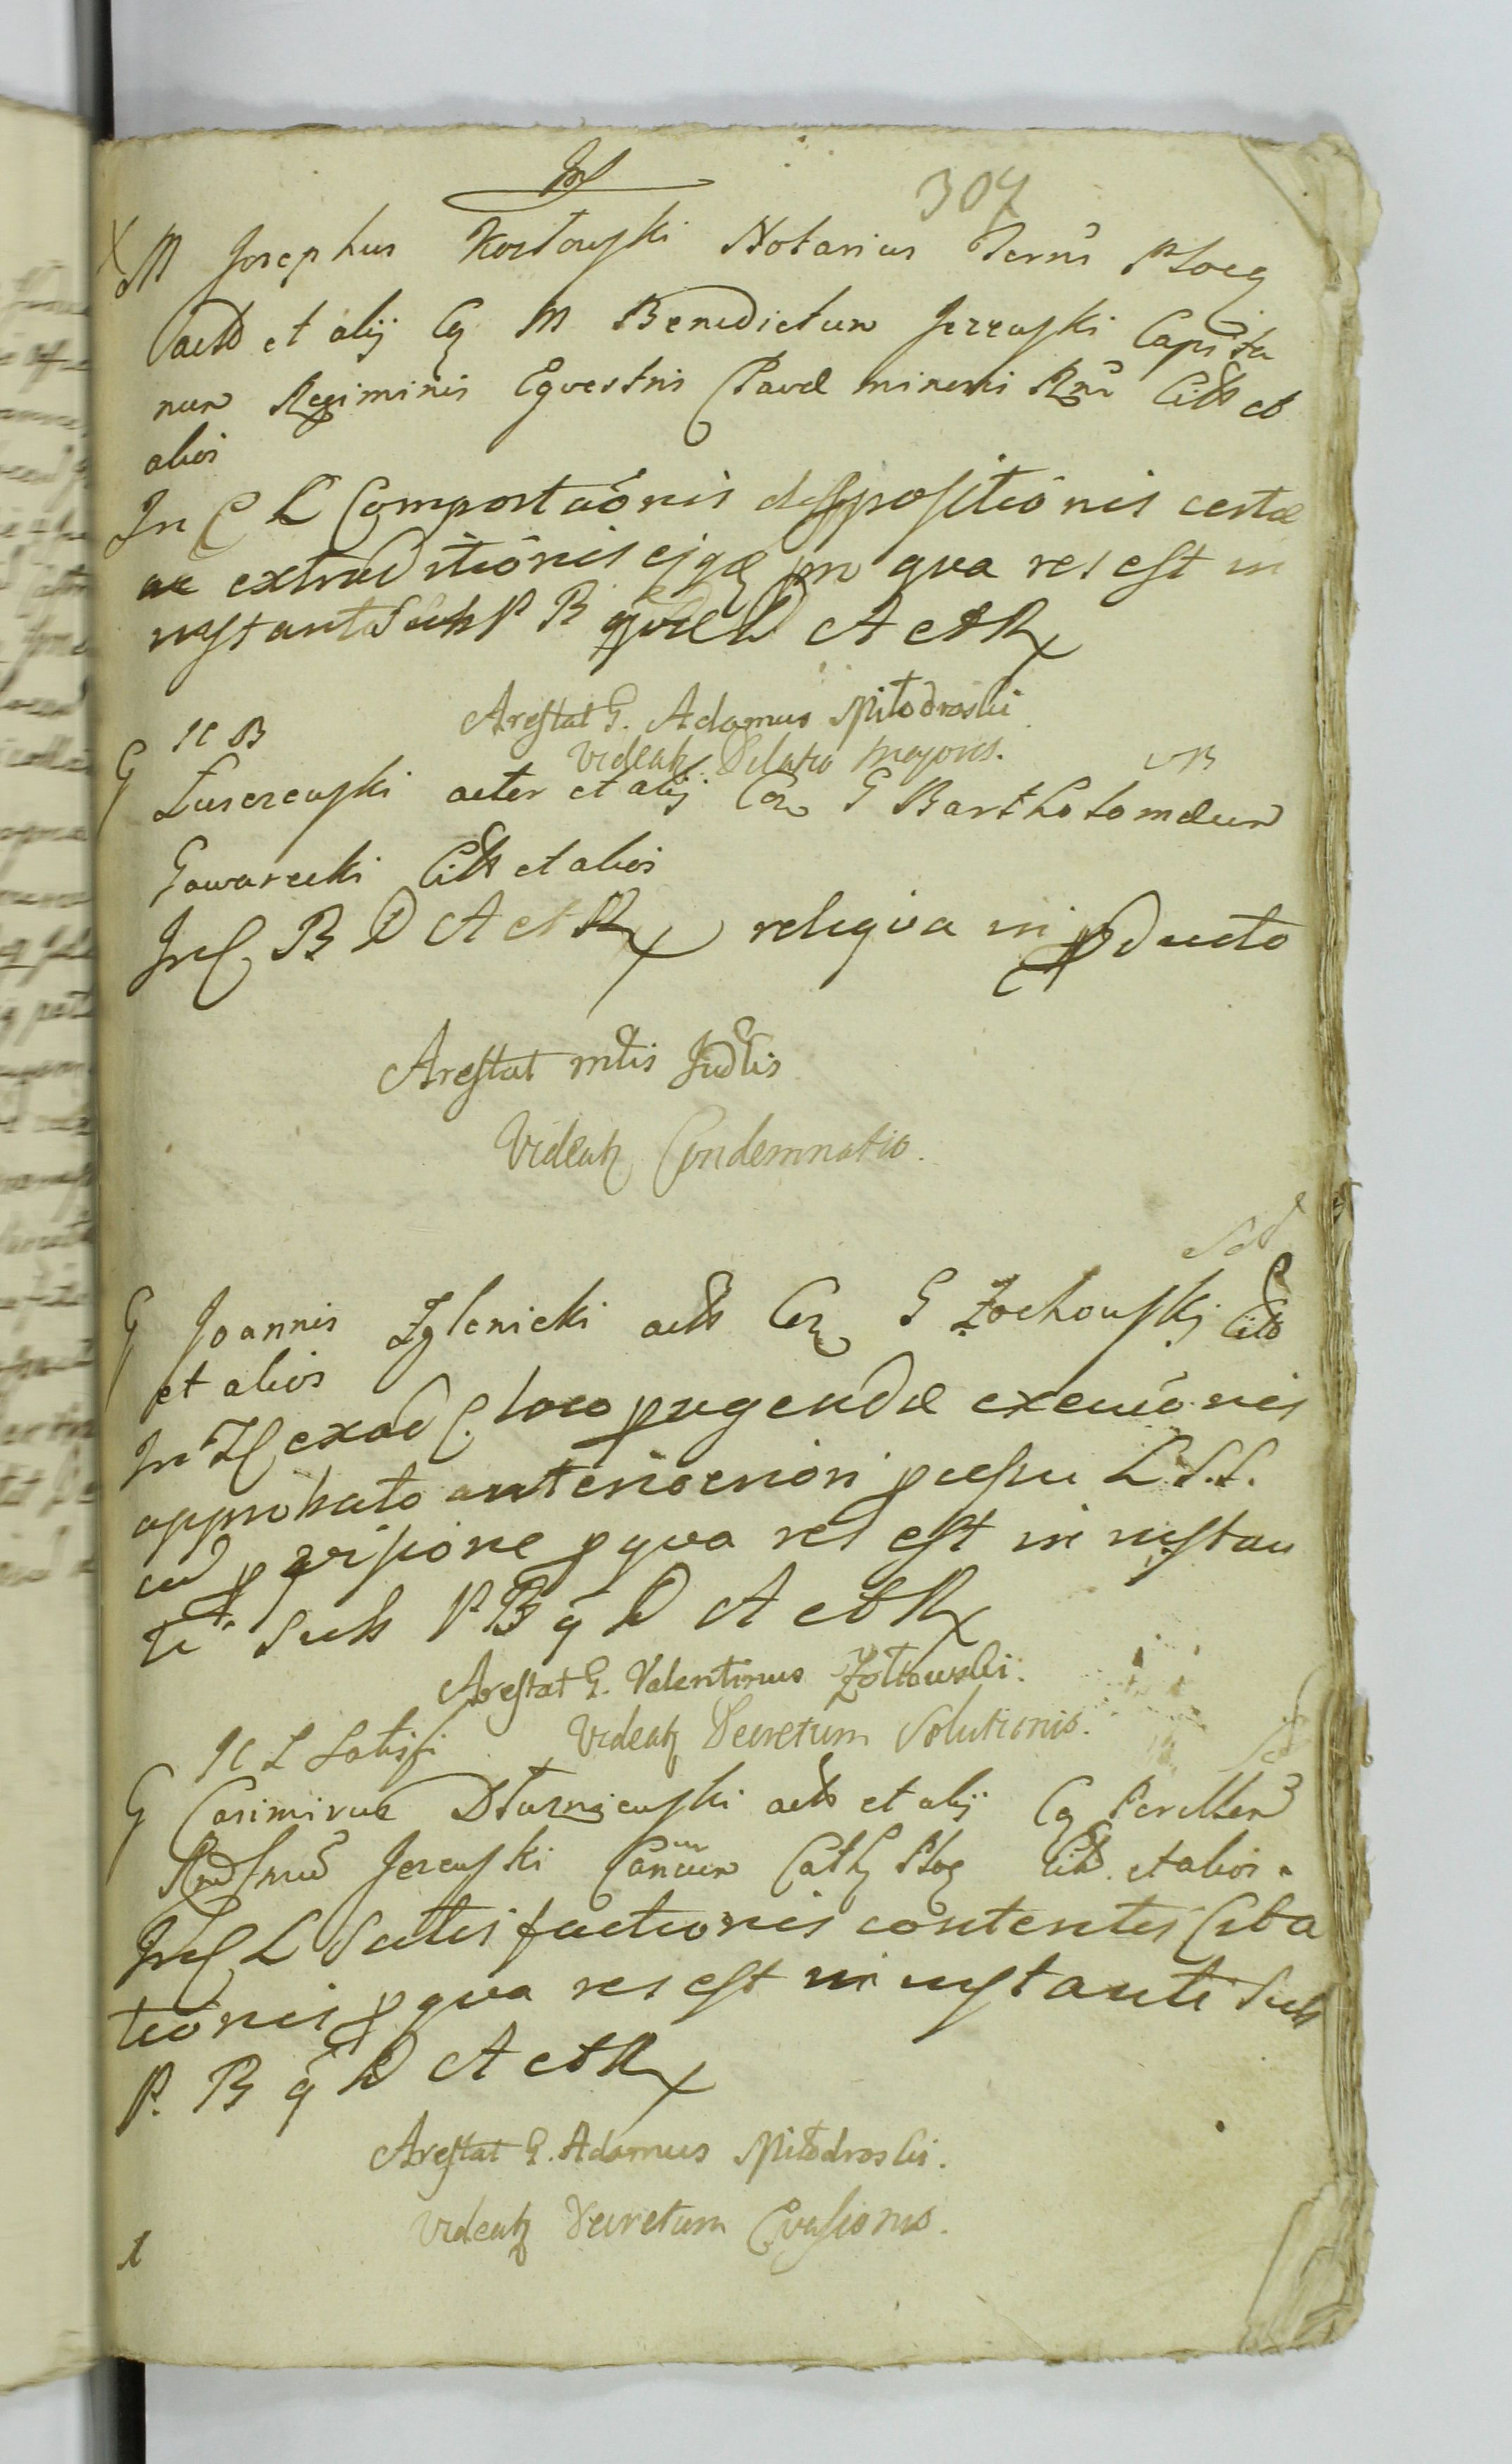 307
M Josephus Kozłowski Notarius Terris Ploc
actor et alij Cg M Benedictum Jezewski Capita
neum Regiminis Equestris Clavæ minoris Rni Citt et
alios
In C L Comportaõnis dispositiõnis certæ
ac extraditiõnis ejgq pro qua res est in
instanti Sub P B D A et R
Arestat G. Adamus Miłodroski
Videatz Delatio majoris.
N B
G Łuszczewski actor et alij Cn G Bartholomæum
Gowarecki Citt et alios
In C B D A et R reliqua in pducto
Arestat mtis Judtis
Videatz Condemnatio.
G Joannis Zglenicki actt Cn G Zochowski Citt
et alios
In C exad loco pagendæ execuõnis
approbato anteriori pcessu L.S.S.
cum pvisione p qua res est in instan
ti Sub P B q D A et R
Arestat G. Valentinus Żołtowski.
Videatz Decretum Solutionis.
N L Satisf
G Casimirus Dłuzniewski actt et alij Cg Perillem
Rndsmum Jezewski Cancum Cath Ploc Citt et alios.
In C L Satisfactionis contentis Cita
tiõnis p qua res est in instanti Sub
P. B q D A et R
Arestat G. Adamus Miłodroski.
Videatz Decretum Evasionis.